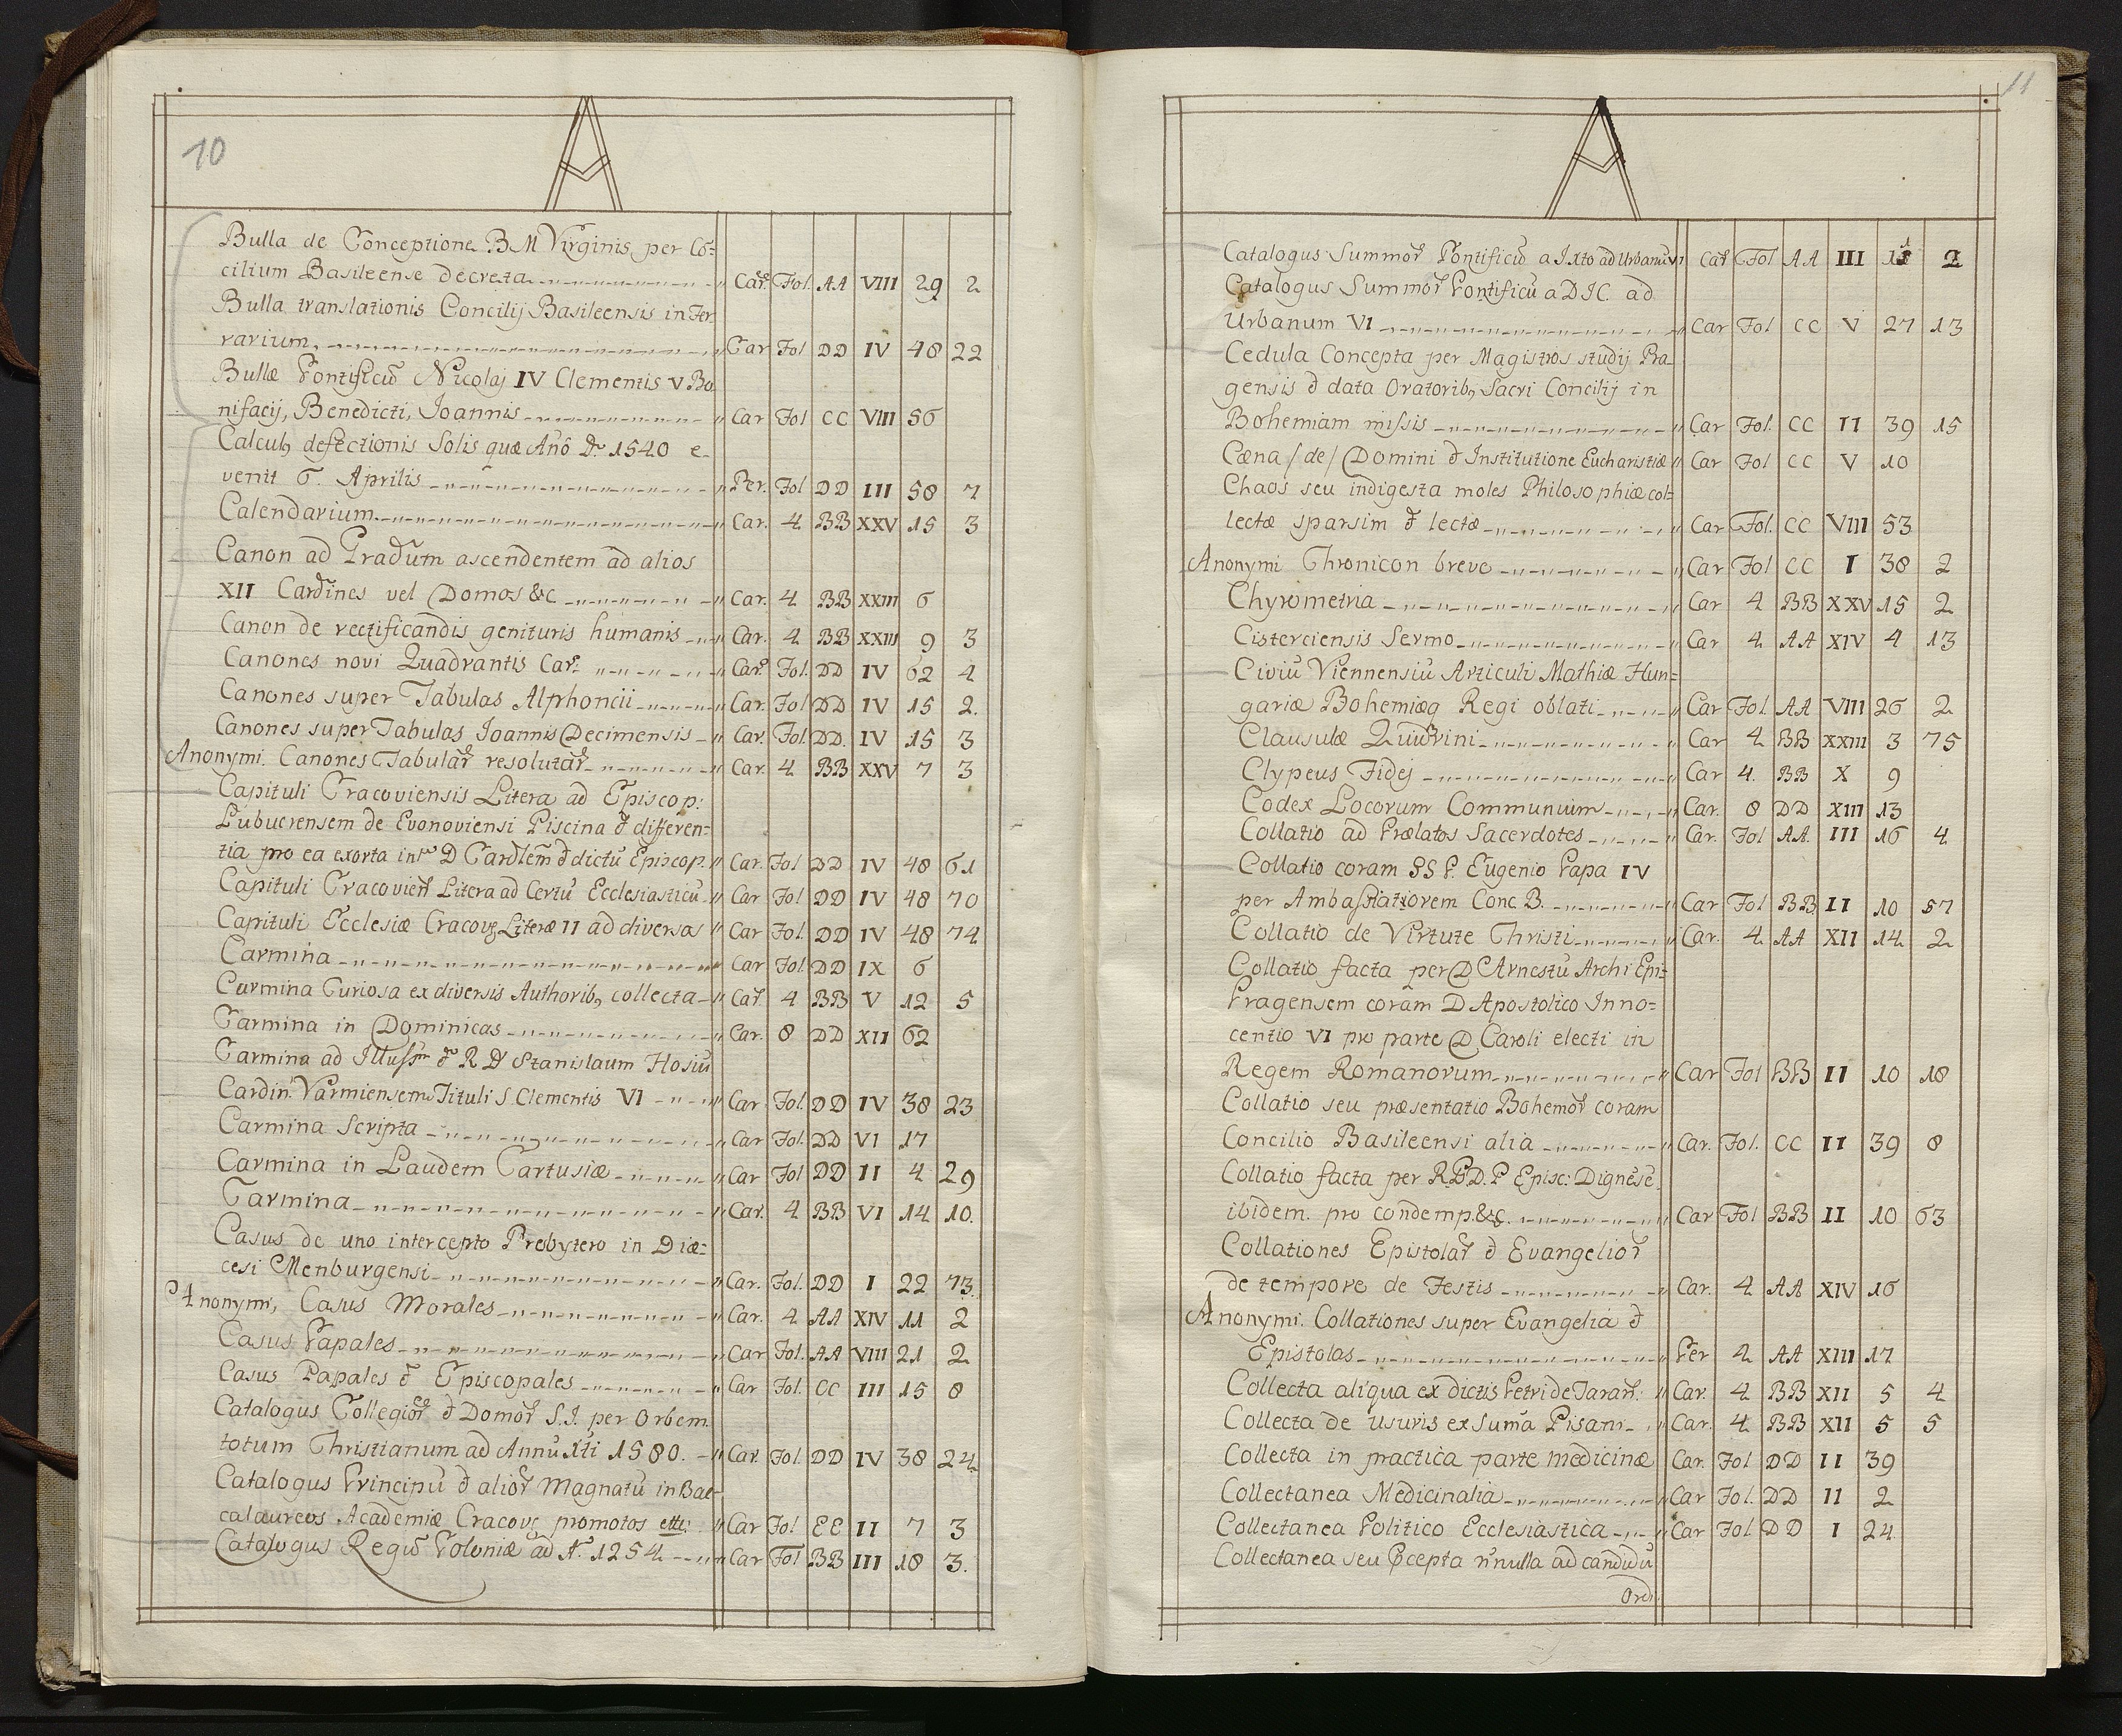 10
A
Bulla de Conceptione B M Virginis per Cō=
cilium Basileense decreta Car. Fol. AA VIII 29 2
Bulla translationis Concilij Basileensis in Fer
rarium, Car Fol DD IV 48 22
Bullæ Pontificū Nicolaj IV Clementis V Bo
nifacij, Benedicti, Joannis Car Fol CC VIII 56
defectionis Solis quæ Año Dñ 1540 e=
venit 6. Aprilis Per. Fol DD III 58 7
Calendarium Car. 4 BB XXV 15 3
Canon ad Gradum ascendentem ad alios
XII Cardines vel Domos &c Car. 4 BB XXIII 6
Canon de rectificandis genituris humanis Car. 4 BB XXIII 9 3
Canones novi Quadrantis Car. Car. Fol. DD IV 62 4
Canones super Tabulas Alphoncii Car. Fol DD IV 15 2.
Canones super Tabulas Joannis Decimensis Car. Fol. DD. IV 15 3
Anonymi. Canones Tabular resolutar Car. 4 BB XXV 7 3
Capituli Cracoviensis Litera ad Episcop:
Lubucensem de Evonoviensi Piscina & differen=
tia pro ea exorta int. D Cardlem & dictū Episcop. Car. Fol DD IV 48 61
Capituli Cracovien Litera ad Certū Ecclesiasticū Car Fol DD IV 48 70
Capituli Ecclesiæ Cracov Literæ 11 ad diversos Car Fol. DD IV 48 74
Carmina Car Fol. DD IX 6
Carmina Curiosa ex diversis Authorib, collecta Car. 4 BB V 12 5
Carmina in Dominicas Car. 8 DD XII 62
Carmina ad Illussm & R D Stanislaum Hosiū
Cardin. Varmiensem Tituli S. Clementis VI Car Fol. DD IV 38 23
Carmina Scripta Car Fol. DD VI 17
Carmina in Laudem Cartusiæ Car Fol DD II 4 29
Carmina Car. 4 BB VI 14 10.
Casus de uno intercepto Presbytero in Diæ=
cesi Menburgensi Car. Fol. DD I 22 73.
Anonymi, Casus Morales Car. 4 AA XIV 11 2
Casus Papales Car Fol. AA VIII 21 2
Casus Papales & Episcopales Car Fol. CC III 15 8
Catalogus Collegior & Domor S.J. per Orbem
totum Christianum ad Annū Xti 1580. Car. Fol. DD IV 38 24
Catalogus Principū & alior Magnatū in Bac=
calaureos Academiæ Cracov promotos ette Car Fol EE II 7 3
Catalogus Regū Poloniæ ad A. 1254 Car Fol BB III 18 3.
11
A
Catalogus Summor Pontificū a I Xto ad Urbanū VI Car Fol AA III 2
Catalogus Summor Pontificū a D I C. ad
Urbanum VI Car Fol CC V 27 13
Cedula Concepta per Magistros studij Pra=
gensis & data Oratorib, Sacri Concilij in
Bohemiam missis Car Fol. CC II 39 15
Cæna /de/ Domini & Institutione Eucharistiæ Car Fol CC V 10
Chaos seu indigesta moles Philosophiæ col=
lectæ sparsim & lectæ Car Fol. CC VIII 53
Anonymi Chronicon breve Car Fol CC I 38 2
Chyrometria Car 4 BB XXV 15 2
Cisterciensis Sermo Car 4 AA XIV 4 13
Civiū Viennensiū Articuli Mathiæ Hun=
gariæ Bohemiæq Regi oblati Car Fol AA VIII 26 2
Clausulæ Car 4 BB XXIII 3 75
Clypeus Fidej Car 4. BB X 9
Codex Locorum Communium Car. 8 DD XIII 13
Collatio ad Prælatos Sacerdotes Car. Fol AA. III 16 4
Collatio coram SS P. Eugenio Papa IV
per Ambassiatorem Conc. B. Car Fol BB II 10 57
Collatio de Virtute Christi Car. 4 AA XII 14 2
Collatio facta per D Arnestū Archi Epi=
Pragensem coram D Apostolico Inno=
centio VI pro parte D Caroli electi in
Regem Romanorum Car Fol BB II 10 18
Collatio seu præsentatio Bohemor coram
Concilio Basileensi alia Car. Fol. CC II 39 8
Collatio facta per R.P.D. P Episc: Dignēsē
ibidem. pro condemp. &c. Car Fol BB II 10 63
Collationes Epistolar & Evangelior
de tempore de Festis Car. 4 AA XIV 16
Anonymi. Collationes super Evangelia &
Epistolas Per 4 AA XIII 17
Collecta aliqua ex dictis Petri de Taran: Car. 4 BB XII 5 4
Collecta de usuris ex Sum̄a Pisani Car. 4 BB XII 5 5
Collecta in practica parte medicinæ Car. Fol DD II 39
Collectanea Medicinalia Car Fol. DD II 2
Collectanea Politico Ecclesiastica Car Fol DD I 24
Collectanea seu p̄cepta n̄nulla ad candidū
Ordi